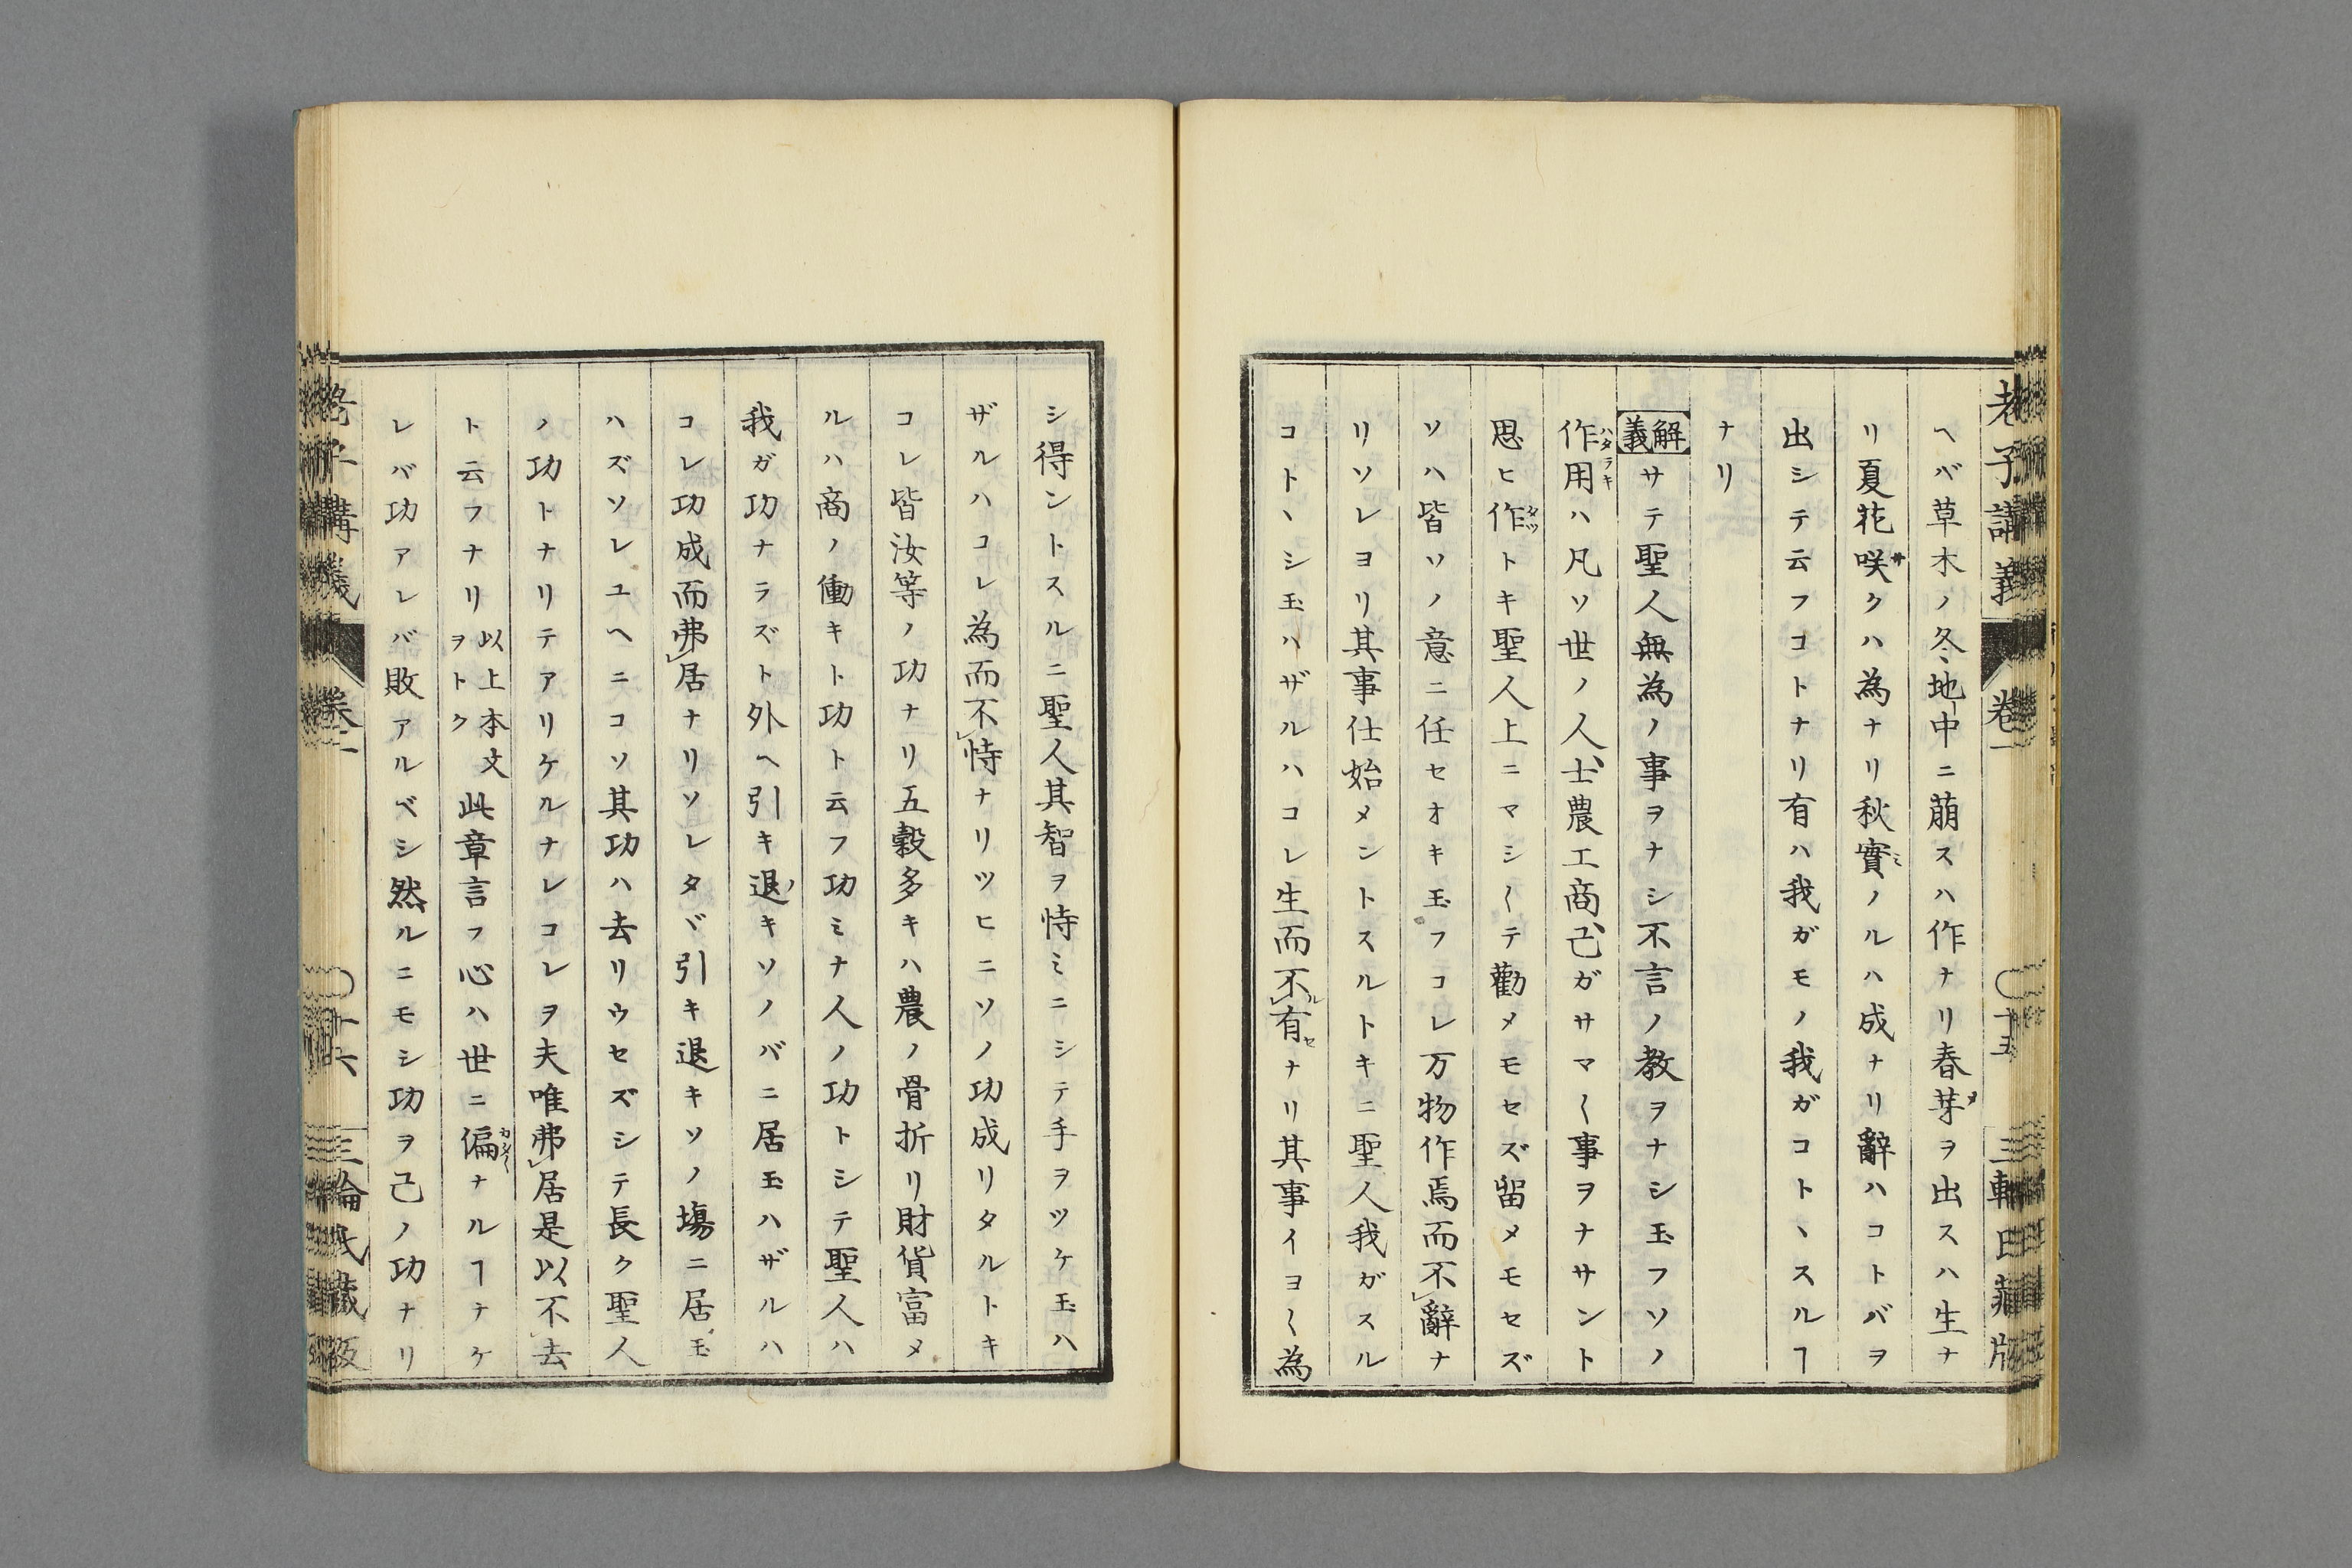 老子講義 卷一 〇十五 三輪氏藏版
ヘバ草木ノ冬、地中ニ萠スハ作ナリ春芽メヲ出スハ生ナ
リ夏花咲サクハ為ナリ秋實ミノルハ成ナリ辭ハコトバヲ
出シテ云フコトナリ有ハ我ガモノ我ガコトヽスルヿ
ナリ
解義サテ聖人無為ノ事ヲナシ不言ノ教ヲナシ玉フソノ
作用ハタラキハ凡ソ世ノ人、士農工商、己ガサマ〱事ヲナサント
思ヒ作タツトキ聖人上ニマシ〱テ勸メモセズ留メモセズ
ソハ皆ソノ意ニ任セオキ玉フコレ万物作焉而不辭ナ
リソレヨリ其事仕始メントスルトキニ聖人我ガスル
コトヽシ玉ハザルハコレ生而不ル有セナリ其事イヨ〱為
シ得ントスルニ聖人其智ヲ恃ミニシテ手ヲツケ玉ハ
ザルハコレ為而不恃ナリツヒニソノ功成リタルトキ
コレ皆汝等ノ功ナリ五穀多キハ農ノ骨折リ財貨富メ
ルハ商ノ働キト功ト云フ功ミナ人ノ功トシテ聖人ハ
我ガ功ナラズト外ヘ引キ退ノキソノバニ居玉ハザルハ
コレ功成而弗居ナリソレタヾ引キ退キソノ塲ニ居玉
ハズソレユヘニコソ其功ハ去リウセズシテ長ク聖人
ノ功トナリテアリケルナレコレヲ夫唯弗居是以不去
ト云フナリ以上本文ヲトク此章言フ心ハ世ニ偏ナルヿナケ
レバ功アレバ敗アルベシ然ルニモシ功ヲ己ノ功ナリ
老子講義 卷一 〇十六 三輪氏藏版